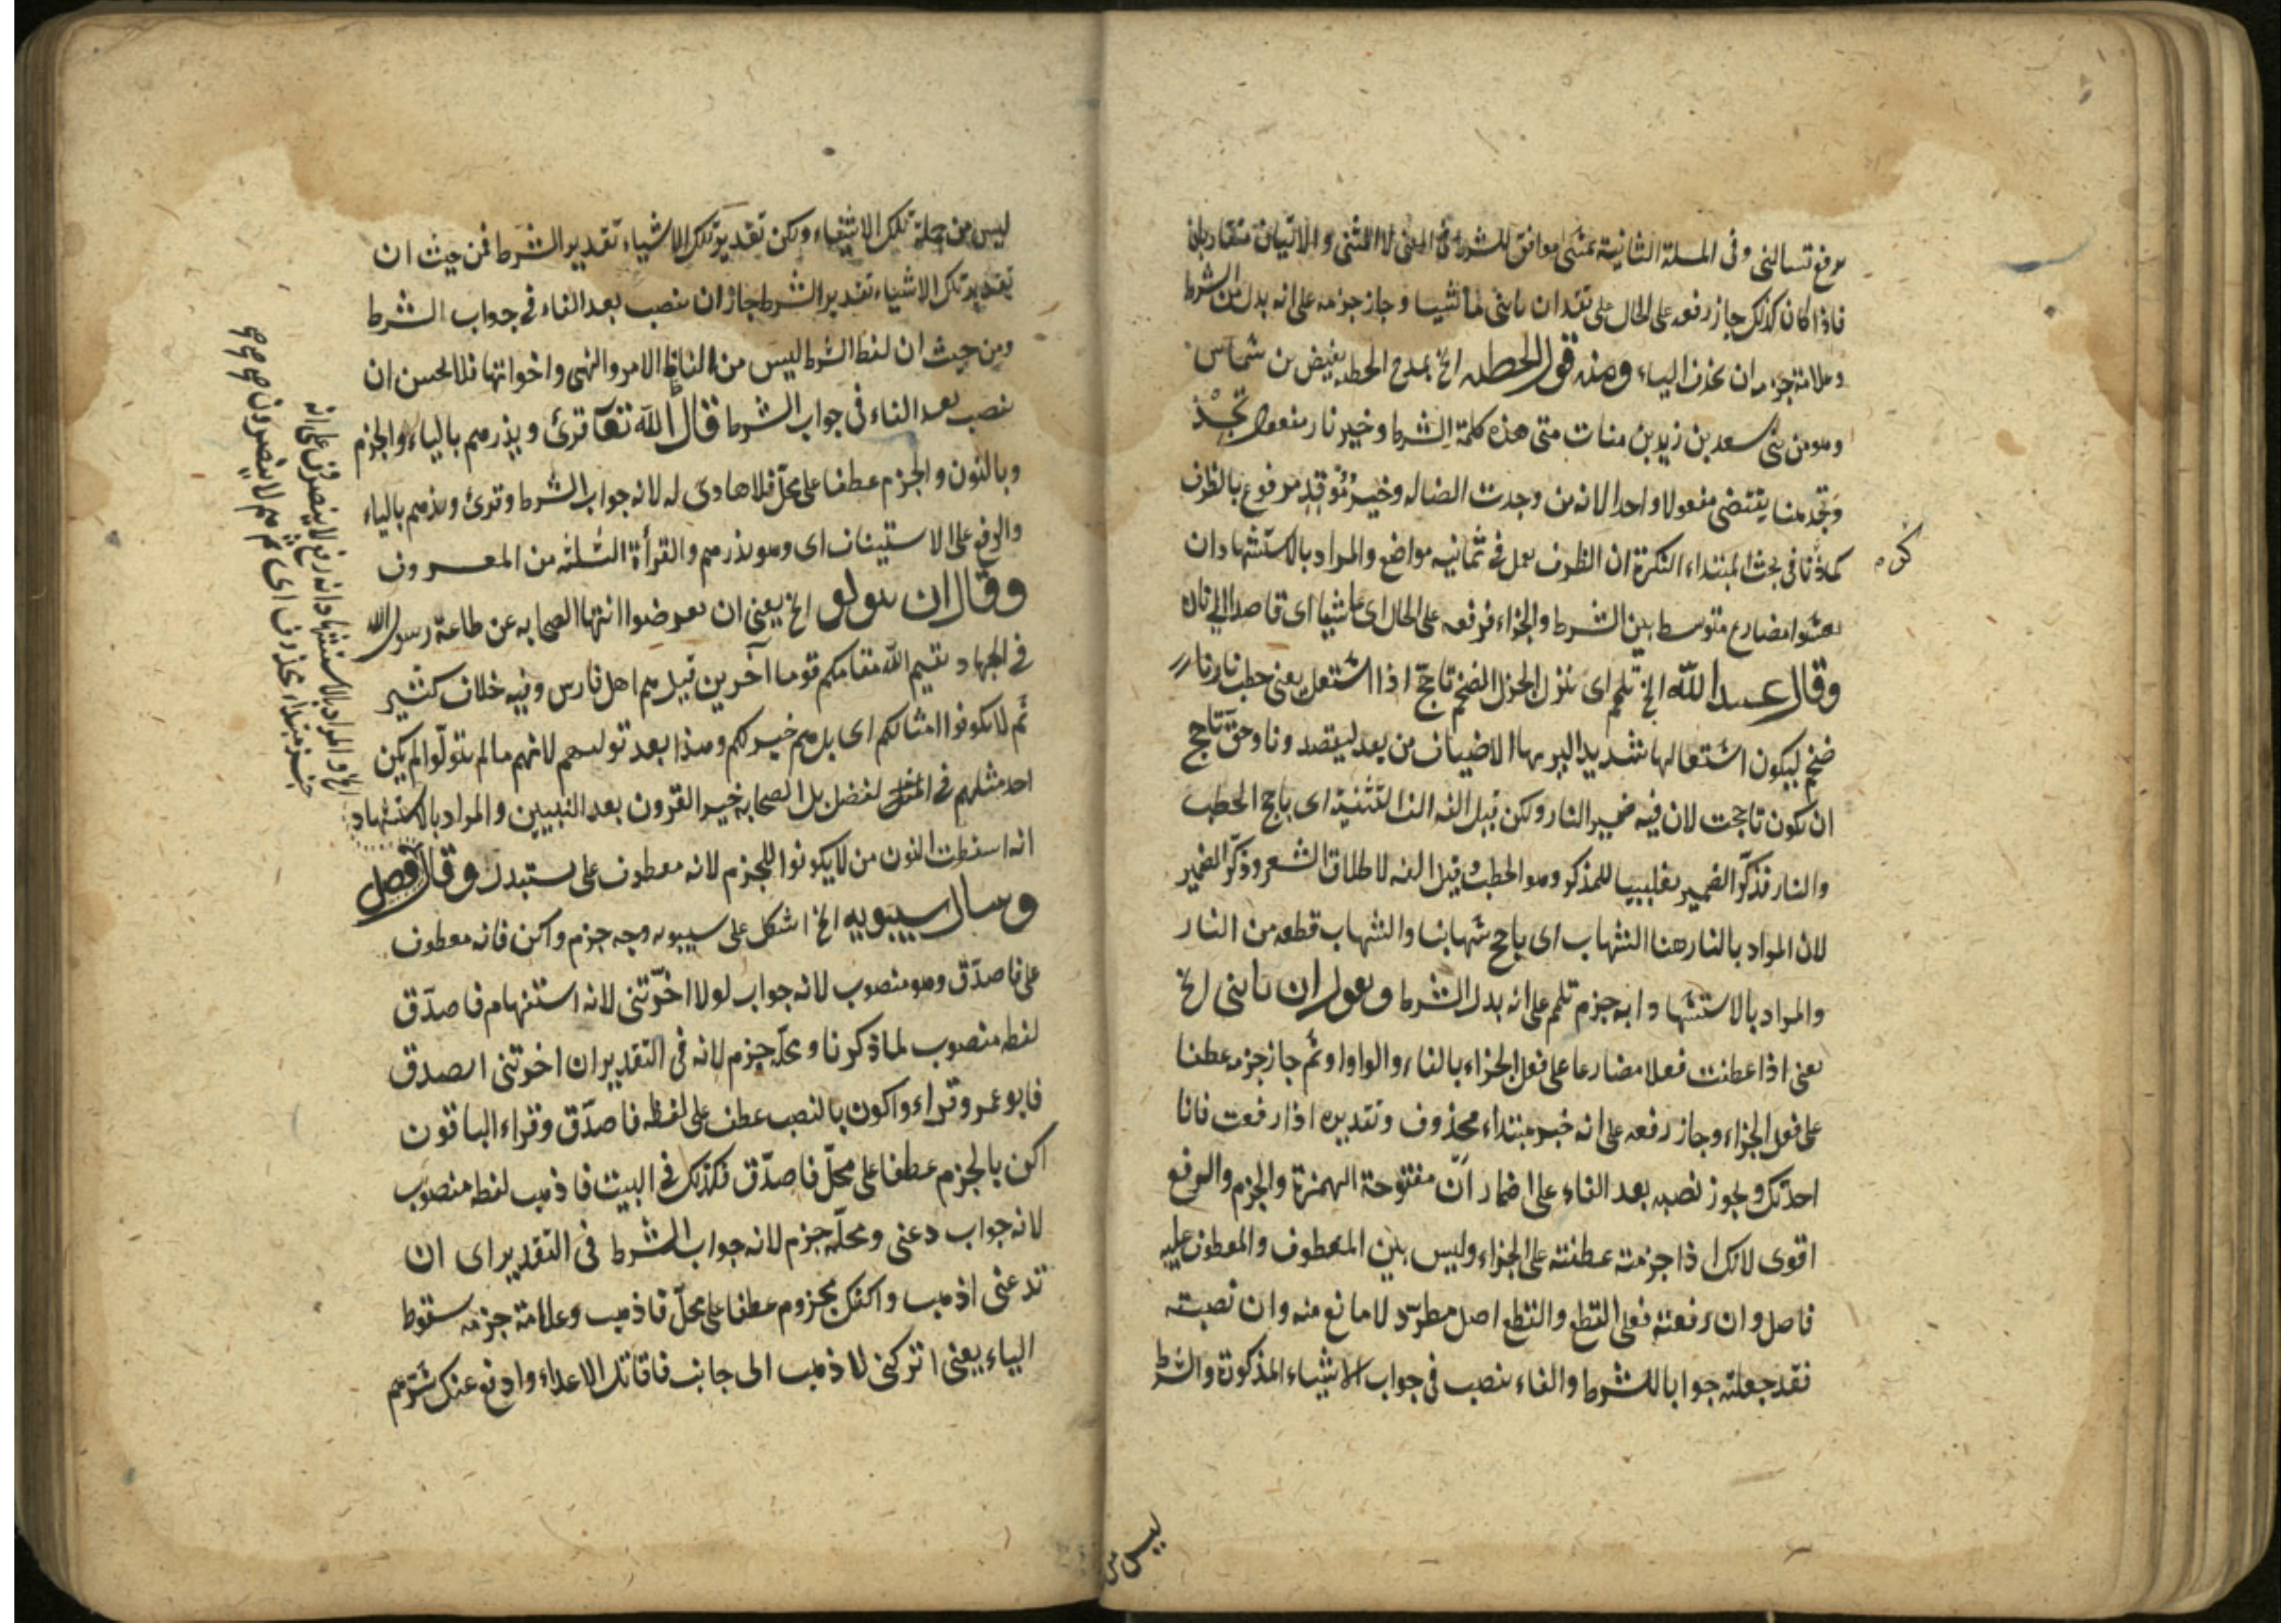 مرفوع تسالنی وفی المسلة الثانیة تمشی موافق للشرط فی المعنی لان المشی والاتیان متقاربان
فاذا کان کذلک جاز رفعه علی الحال علی تقدیر ان تاتنی ماشیا وجاز جزمه علی انه بدل من الشرط
وعلامة جزمه ان تحذف الیاء ومنه قول الحطیه الخ یمدح الحطیه بغیض بن شماس
وهو من بنی سعد بن زید بن منات متی هذه کلمة الشرط وخیر نار مفعول تجد
وتجد هنا یقتضی مفعولا واحدا لانه من وجدت الضاله وخیر موقد مرفوع بالظرف
کما ذکرنا فی بحث المبتداء النکرة ان الظرف یعمل فی ثمانیه مواضع والمراد بالاستشهاد ان
تعشوا مضارع متوسط بین الشرط والجزاء فرفعه علی الحال ای عاشیا ای قاصدا الی نار
وقال عبید الله الخ تلمم ای تنزل الجزل الضخم تاجج اذا اشتعل یعنی حطب نارنا
ضخم لیکون اشتعالها شدیدا لیریها الاضیاف من بعد لیقصدونا وحق تاجج
ان یکون تاججت لان فیه ضمیر النار ولکن قیل الفه الف التثنیة ای تاجج الحطب
والنار فذکر الضمیر تغلیبا للمذکر وهو الحطب وقیل الفه لاطلاق الشعر وذکر الضمیر
لان المراد بالنار هنا الشهاب ای تاجج شهابنا والشهاب قطعه من النار
والمراد بالاستشهاد انه جزم تلمم علی انه بدل الشرط وتقول ان تاتنی الخ
یعنی اذا عطفت فعلا مضارعا علی فعل الجزاء بالفاء والواو او ثم جاز جزمه عطفا
علی فعل الجزاء وجاز رفعه علی انه خبر مبتداء محذوف وتقدیره اذا رفعت فانا
احدثک ویجوز نصبه بعد الفاء علی اضمار ان مفتوحة الهمزة والجزم والرفع
اقوی لانک اذا جزمته عطفته علی الجزاء ولیس بین المعطوف والمعطوف علیه
فاصل وان رفعته فعلی القطع والقطع اصل مطرد لا مانع منه وان نصبته
فقد جعلته جوابا للشرط والفاء ینصب فی جواب الاشیاء المذکورة والشرط
لیس من
لیس من جملة تلک الاشیاء ولکن تقدیر تلک الاشیاء تقدیر الشرط فمن حیث ان
تقدیر تلک الاشیاء تقدیر الشرط جاز ان ینصب بعد الفاء فی جواب الشرط
ومن حیث ان لفظ الشرط لیس من الفاظ الامر والنهی واخواتها فلا یحسن ان
ینصب بعد الفاء فی جواب الشرط قال الله تعآ قرئ ویذرهم بالیاء والجزم
وبالنون والجزم عطفا علی محل فلا هادی له لانه جواب الشرط وقرئ ویذرهم بالیاء
والرفع علی الاستیناف ای وهو یذرهم والقرأة الثلثه من المعروف
وقال ان یتولو الخ یعنی ان تعرضوا ایتها الصحابه عن طاعة رسول الله
فی الجهاد یقیم الله مقامکم قوما آخرین قیل هم اهل فارس وفیه خلاف کثیر
ثم لا یکونوا امثالکم ای بل هم خیر منکم وهذا بعد تولیهم لانهم ما لم یتولوا لم یکن
احد مثلهم فی الفضل بل الصحابه خیر القرون بعد النبیین والمراد بالاستشهاد
انه اسقطت النون من لا یکونوا للجزم لانه معطوف علی یستبدل وقال فصل
وسال سیبویه الخ اشکل علی سیبویه وجه جزم واکن فانه معطوف
علی فاصدق وهو منصوب لانه جواب لولا اخرتنی لانه استفهام فاصدق
لفظه منصوب لما ذکرنا ومحله جزم لانه فی التقدیر ان اخرتنی اصدق
فابو عمرو قراء واکون بالنصب عطف علی لفظه فاصدق وقراء الباقون
اکن بالجزم عطفا علی محل فاصدق فکذلک فی البیت فاذهب لفظه منصوب
لانه جواب دعنی ومحله جزم لانه جواب الشرط فی التقدیر ای ان
تدعنی اذهب واکفک مجزوم عطفا علی محل فاذهب وعلامة جزمه سقوط
الیاء یعنی اترکنی لاذهب الی جانب فاقاتل الاعداء وادفع عنک شرهم
الخ والمراد بالاستشهاد انه رفع لا ینصرون علی انه
خبر مبتداء محذوف ای ثم هم لا ینصرون